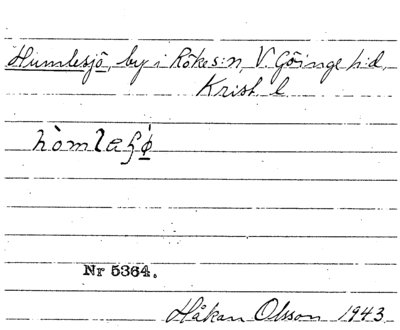 Humlesjö, by i Röke s:n, V. Göinge h:d,
Krist. l
hòmlaʂø̀
Nr 5364.
Håkan Olsson 1943